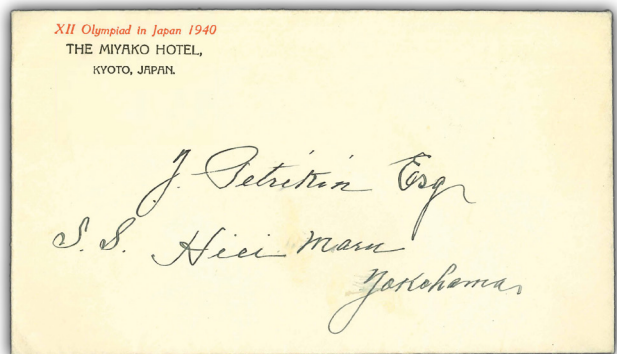 XII Olympiad in Japan 1940
THE MIYAKO HOTEL,
KYOTO, JAPAN.
J. Petrikin Esq
S. S. Hiei Maru
Yokohama